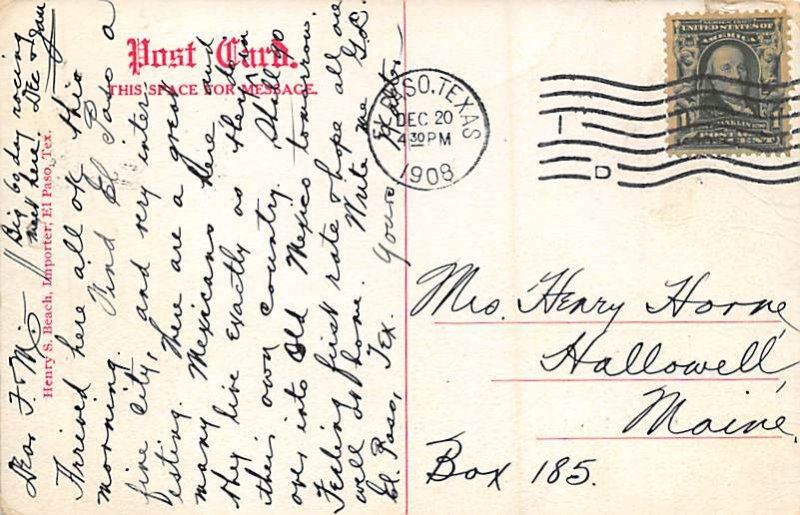 Post Card.
THIS SPACE FOR MESSAGE.
Henry S. Beach, Importer, El Paso, Tex.
Dear F & M,
Arrived here all ok this
morning. Find El Paso a
fine city, and very inter
esting. There are a great
many Mexicans here and
they live exactly as they do in
their own country. Shall go
over into Old Mexico tomorrow.
Feeling first rate & hope all are
well at home. Write me G.D.
El Paso, Tex. Yours
Big 69 day racing
meet here. Dec & Jan
EL PASO, TEXAS
DEC 20
4 30 PM
1908
UNITED STATES OF
AMERICA
FRANKLIN
1
POSTAGE
Mrs. Henry Horne
Hallowell
Maine.
Box 185.